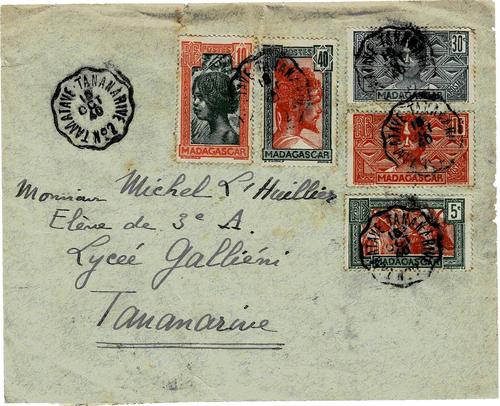 TAMATAVE · TANANARIVE
POSTES
MADAGASCAR
40c
MADAGASCAR
30c
MADAGASCAR
MADAGASCAR
5c
MADAGASCAR
Monsieur Michel L'Huillier
Elève de 3e A.
Lycée Galliéni
Tananarive